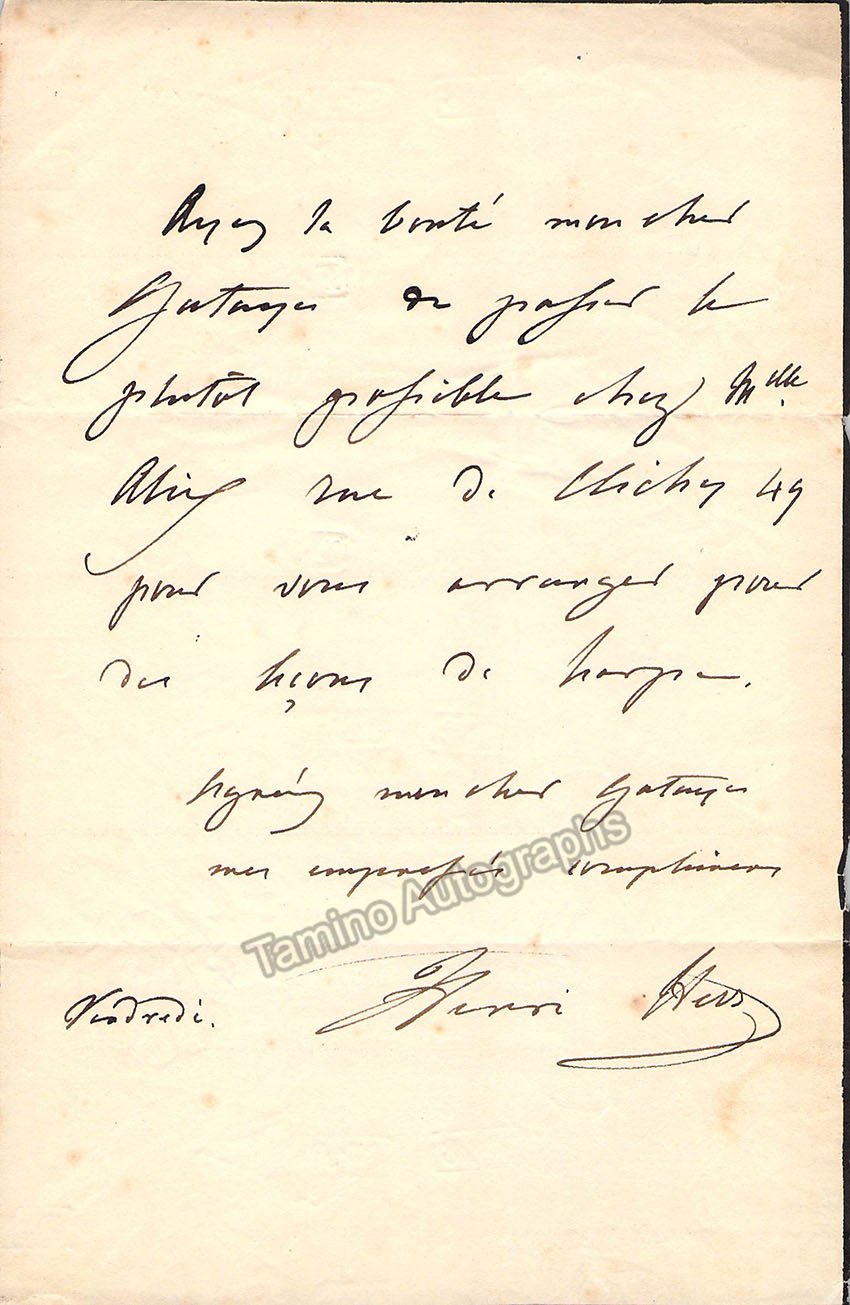 Ayez la bonté mon cher
Gatayes de passer le
plutôt possible chez Mlle
Alix rue de Clichy 49
pour vous arranger pour
des leçons de harpe.
Agréez mon cher Gatayes
mes empressés complimens
Tamino Autographs
Vendredi. Henri Herz